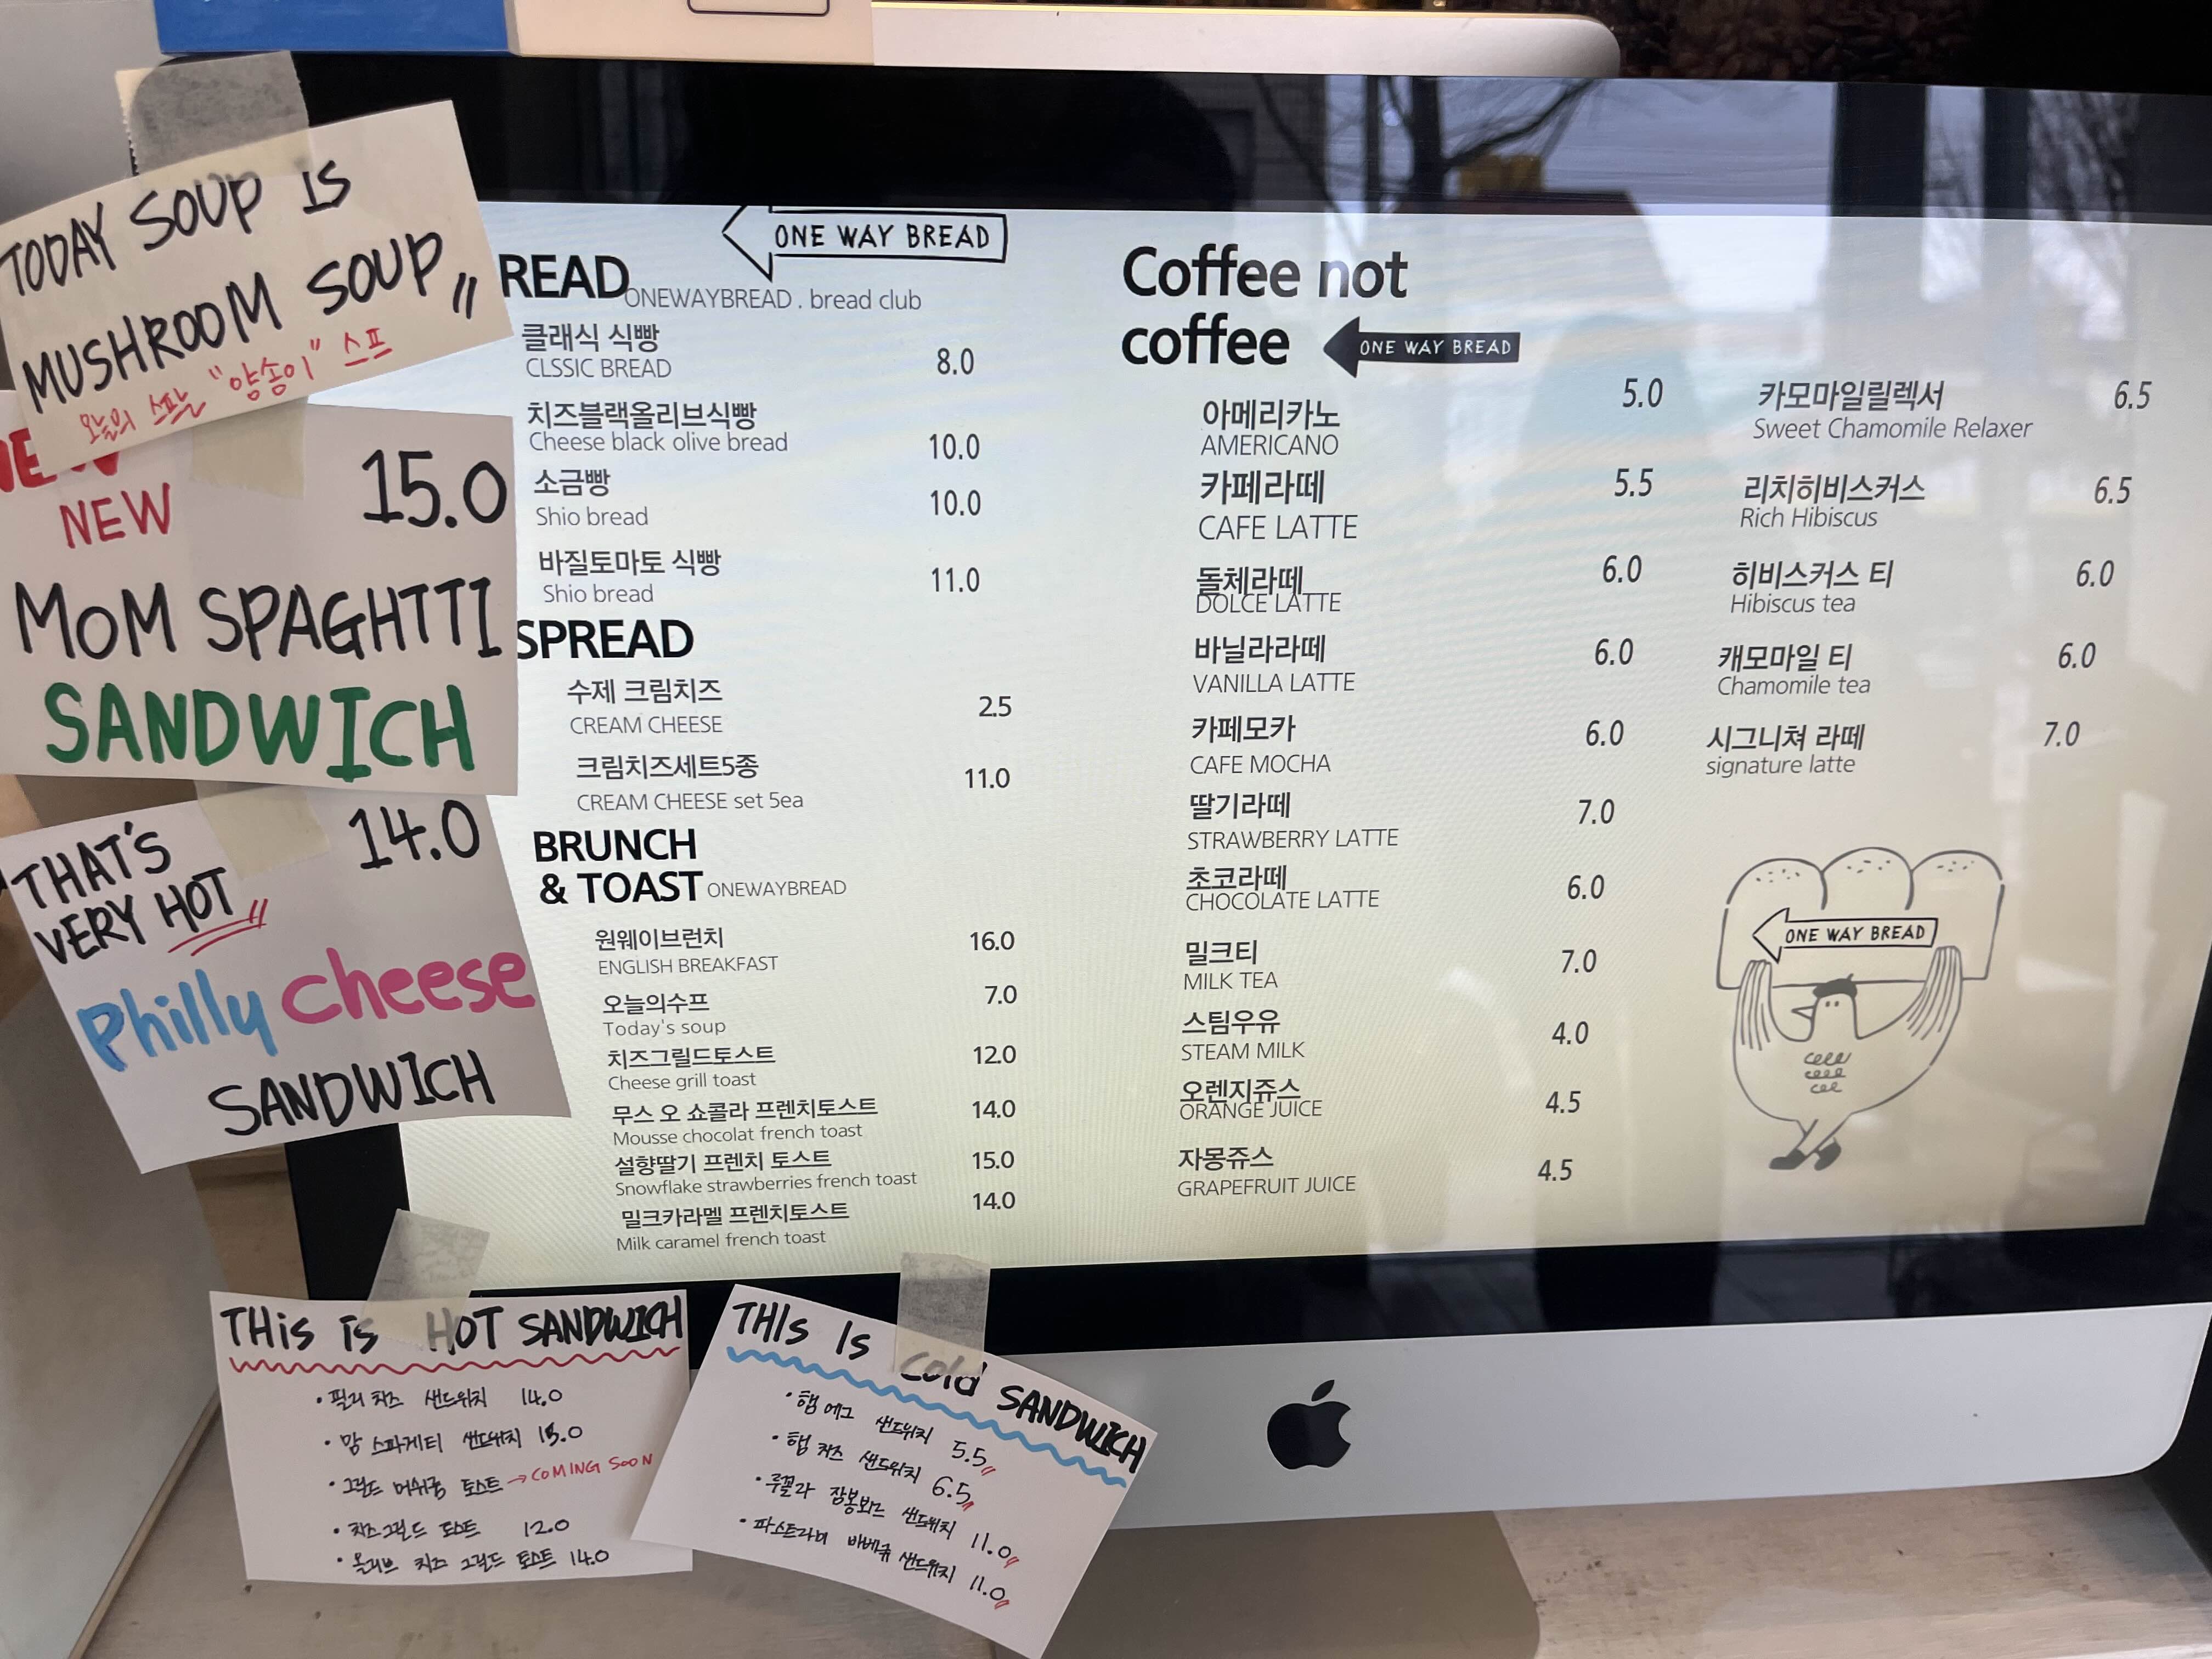 TODAY SOUP IS
MUSHROOM SOUP
오늘의 스프는 "양송이" 스프
NEW
15.0
MOM SPAGHTTI
SANDWICH
THAT'S
VERY HOT
14.0
Philly cheese
SANDWICH
ONE WAY BREAD
READ
ONEWAYBREAD . bread club
클래식 식빵
CLSSIC BREAD
8.0
치즈블랙올리브식빵
Cheese black olive bread
10.0
소금빵
Shio bread
10.0
바질토마토 식빵
Shio bread
11.0
SPREAD
수제 크림치즈
CREAM CHEESE
2.5
크림치즈세트5종
CREAM CHEESE set 5ea
11.0
BRUNCH
& TOAST ONEWAYBREAD
원웨이브런치
ENGLISH BREAKFAST
16.0
오늘의수프
Today's soup
7.0
치즈그릴드토스트
Cheese grill toast
12.0
무스 오 쇼콜라 프렌치토스트
Mousse chocolat french toast
14.0
설향딸기 프렌치 토스트
Snowflake strawberries french toast
15.0
밀크카라멜 프렌치토스트
Milk caramel french toast
14.0
Coffee not
coffee
ONE WAY BREAD
아메리카노
AMERICANO
5.0
카페라떼
CAFE LATTE
5.5
돌체라떼
DOLCE LATTE
6.0
바닐라라떼
VANILLA LATTE
6.0
카페모카
CAFE MOCHA
6.0
딸기라떼
STRAWBERRY LATTE
7.0
초코라떼
CHOCOLATE LATTE
6.0
밀크티
MILK TEA
7.0
스팀우유
STEAM MILK
4.0
오렌지쥬스
ORANGE JUICE
4.5
자몽쥬스
GRAPEFRUIT JUICE
4.5
카모마일릴렉서
Sweet Chamomile Relaxer
6.5
리치히비스커스
Rich Hibiscus
6.5
히비스커스 티
Hibiscus tea
6.0
캐모마일 티
Chamomile tea
6.0
시그니쳐 라떼
signature latte
7.0
ONE WAY BREAD
THis is HOT SANDWICH
· 필리 치즈 샌드위치 14.0
· 맘 스파게티 샌드위치 15.0
· 그릴드 머쉬룸 토스트 → COMING SOON
· 치즈그릴드 토스트 12.0
· 올리브 치즈 그릴드 토스트 14.0
THIs Is Cold SANDWICH
· 햄 에그 샌드위치 5.5
· 햄 치즈 샌드위치 6.5
· 루꼴라 잠봉뵈르 샌드위치 11.0
· 파스트라미 바베큐 샌드위치 11.0